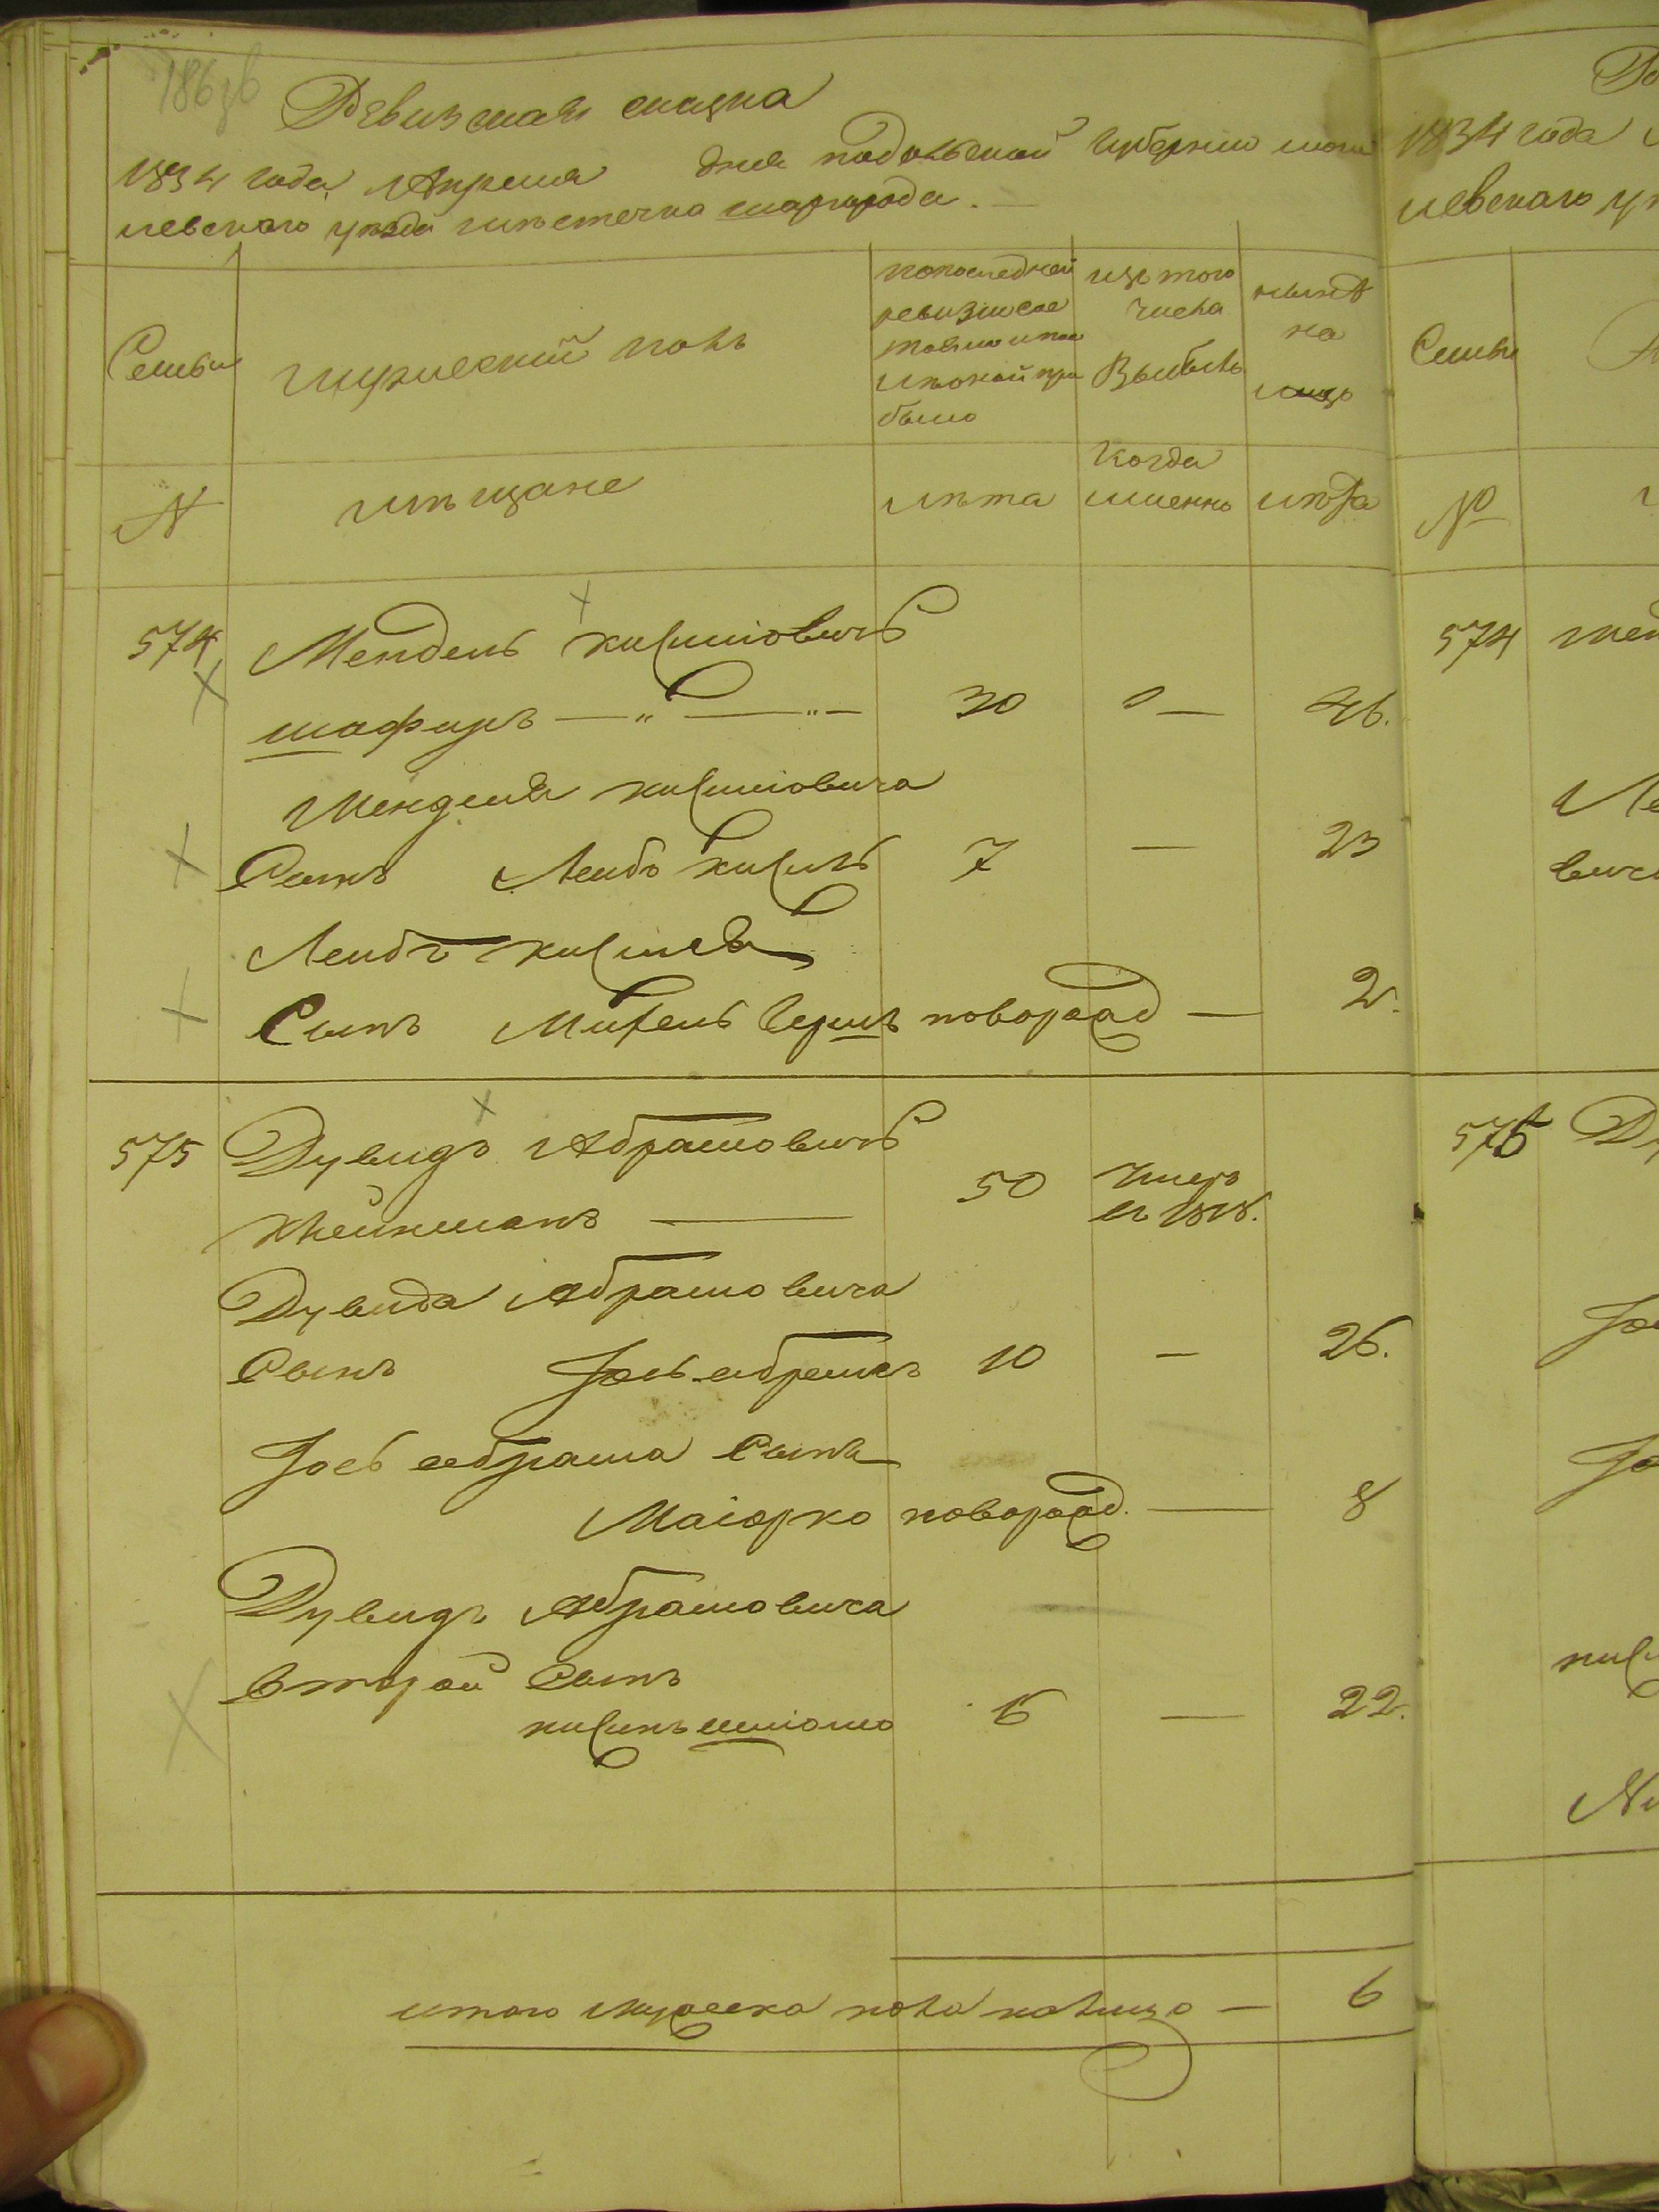 186зв
Ревизская сказка
1834 года Апреля дня подольской губернии моги
левского уезда местечка шаргорода.
Семьи
мужеский полъ
попоследней
ревизисос
тояло ипос
лњоной при
было
изъ того
числа
Выбыло
нынѣ
на
лицо
N
мѣщане
лѣта
когда
именно
лѣта
574
Мендель кисилiовичъ
шафиръ — " — " — 30 — 46.
Менделя кисилiовича
Сынъ Лейбъ кисиль 7 — 23
Лейбъ кисиля
Сынъ Михель Гершъ новорожд — 2.
575
Дувидъ Абрамовичъ
Клейнманъ — 50 умеръ
въ 1818.
Дувида Абрамовича
Сынъ Iось абрамъ 10 — 26.
Iось абрама Сынъ
Маiорко новорожд. — 8
Дувидъ Абрамовича
второй Сынъ
шлiомо 6 — 22.
итого мужеска пола налицо — 6
1834 года
левскаго
Семьи
№
574
575